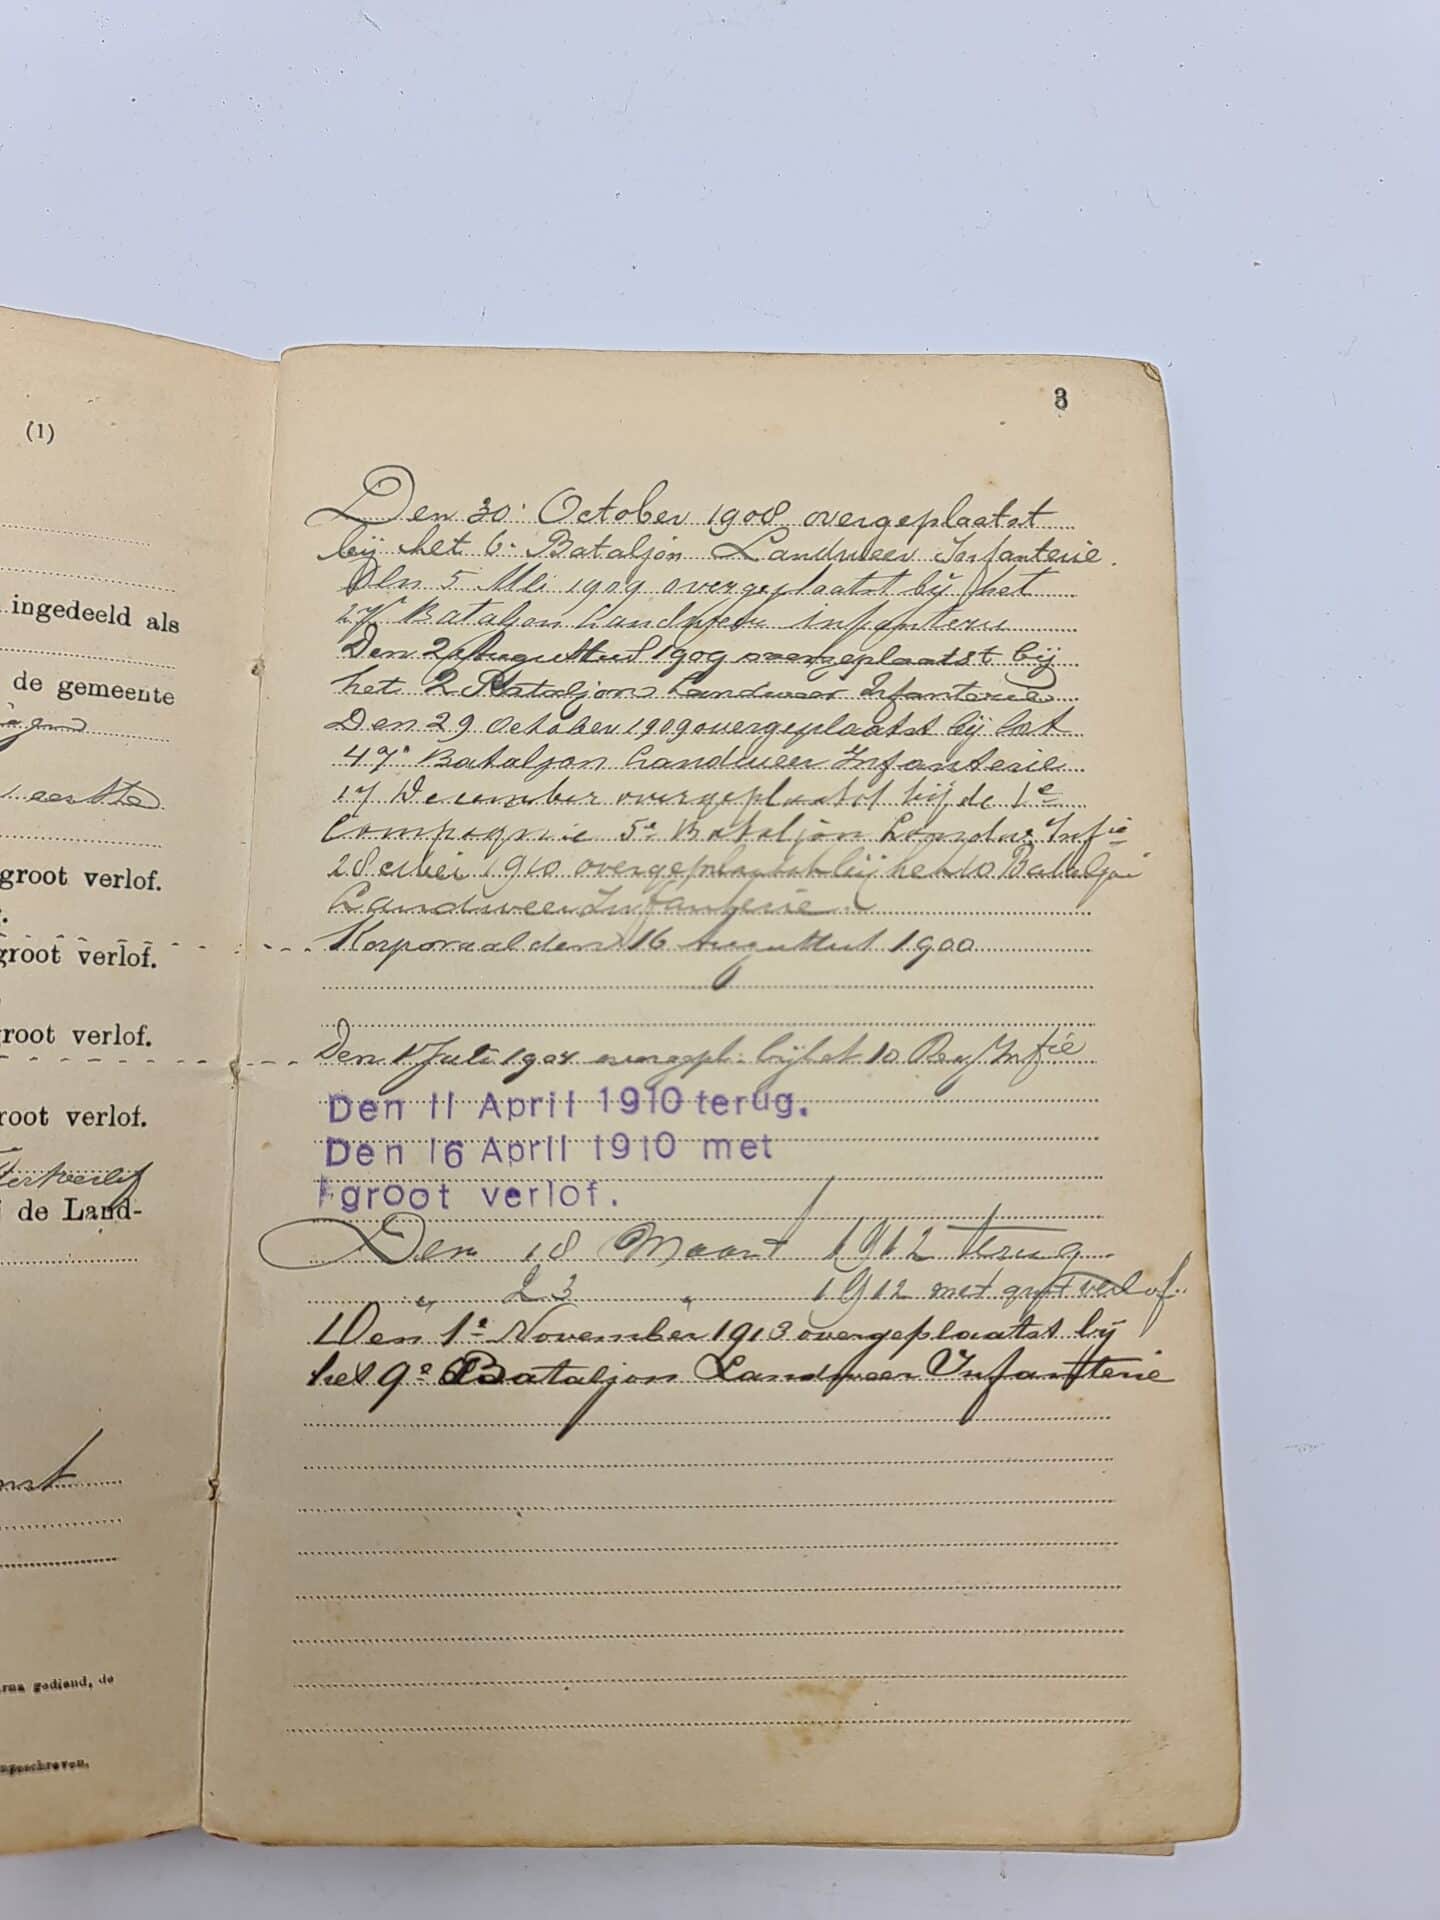 (1)
ingedeeld als
de gemeente
eerste
groot verlof.
groot verlof.
groot verlof.
root verlof.
de Land-
gediend, de
3
Den 30. October 1908 overgeplaatst
bij het 6e Bataljon Landweer Infanterie.
Den 5 Mei 1909 overgeplaatst bij het
Bataljon Landweer infanterie
Den Augustus 1909 overgeplaatst bij
het 2 Bataljon Landweer Infanterie
Den 29 October 1909 overgeplaatst bij het
47e Bataljon Landweer Infanterie
17 December overgeplaatst bij de 1e
Compagnie 5e Bataljon Landw. Infie
28 Mei 1910 overgeplaatst bij het 10 Bataljon
Landweer Infanterie.
Korporaal den 16 Augustus 1900
Den 1 Juli 1904 overgepl. bij het 10 Reg Infie
Den 11 April 1910 terug.
Den 16 April 1910 met
groot verlof.
Den 18 Maart 1912 terug
" 23 " 1912 met groot verlof.
Den 1e November 1913 overgeplaatst bij
het 9e Bataljon Landweer Infanterie